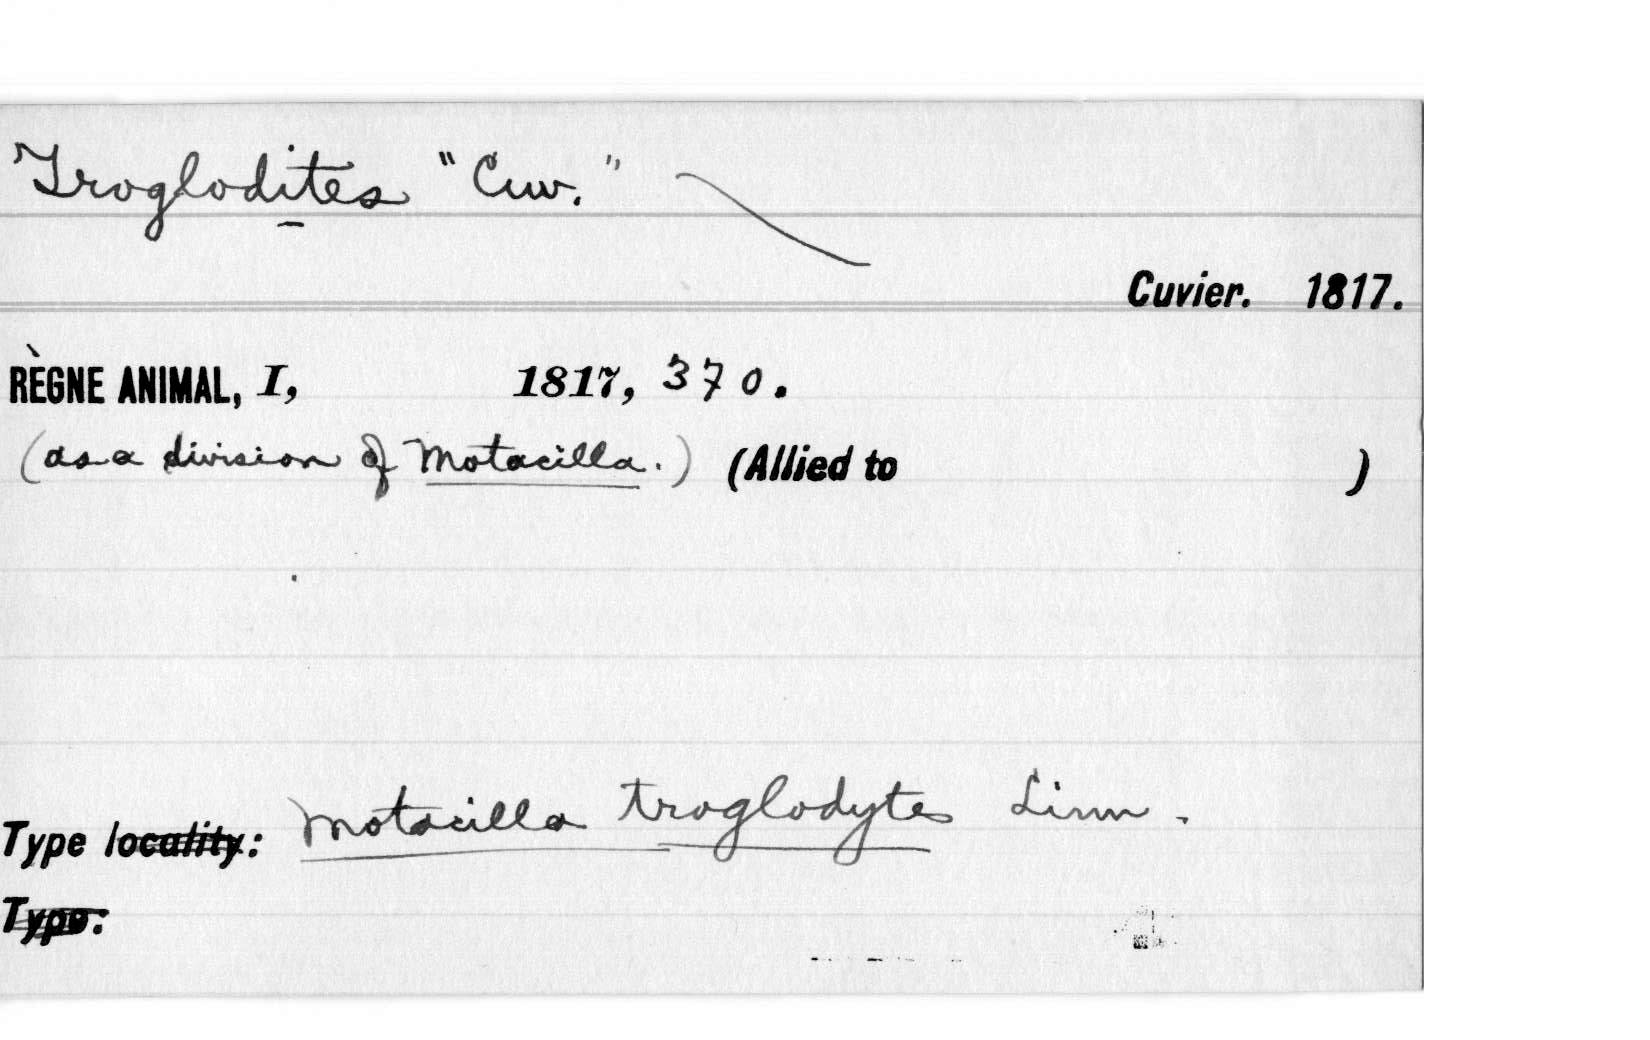 Troglodites "Cuv."
Cuvier. 1817.
RÈGNE ANIMAL, I, 1817, 370.
(as a division of Motacilla.) (Allied to )
Type locality: Motacilla troglodytes Linn.
Type: